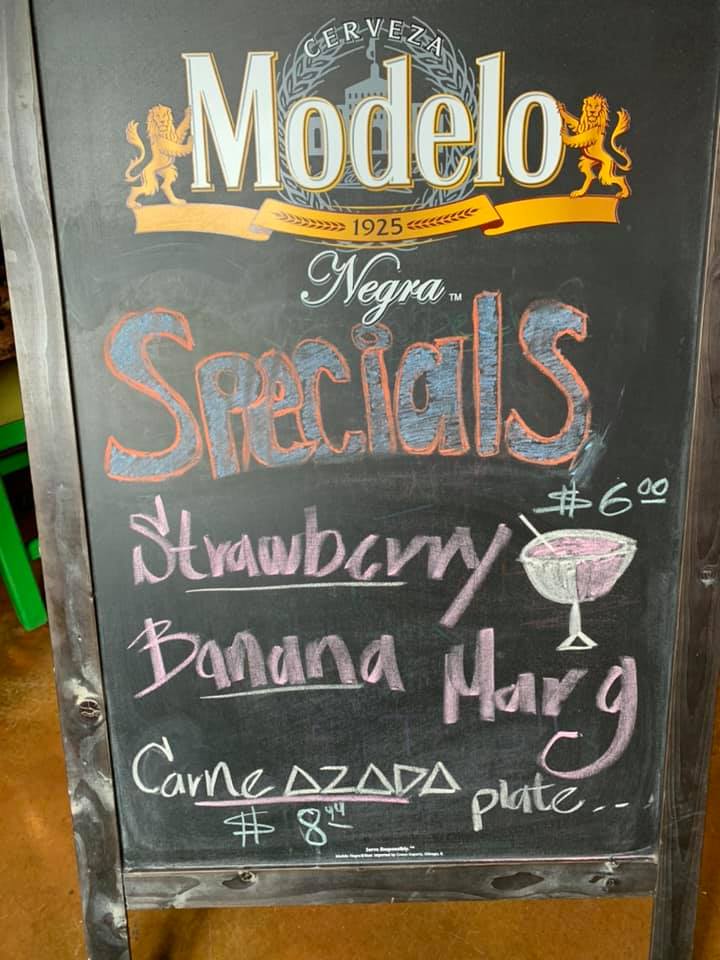 CERVEZA
Modelo
1925
Negra™
Specials
$6.00
Strawberry
Banana Marg
Carne AZADA plate...
$8.99
Serve Responsibly.™